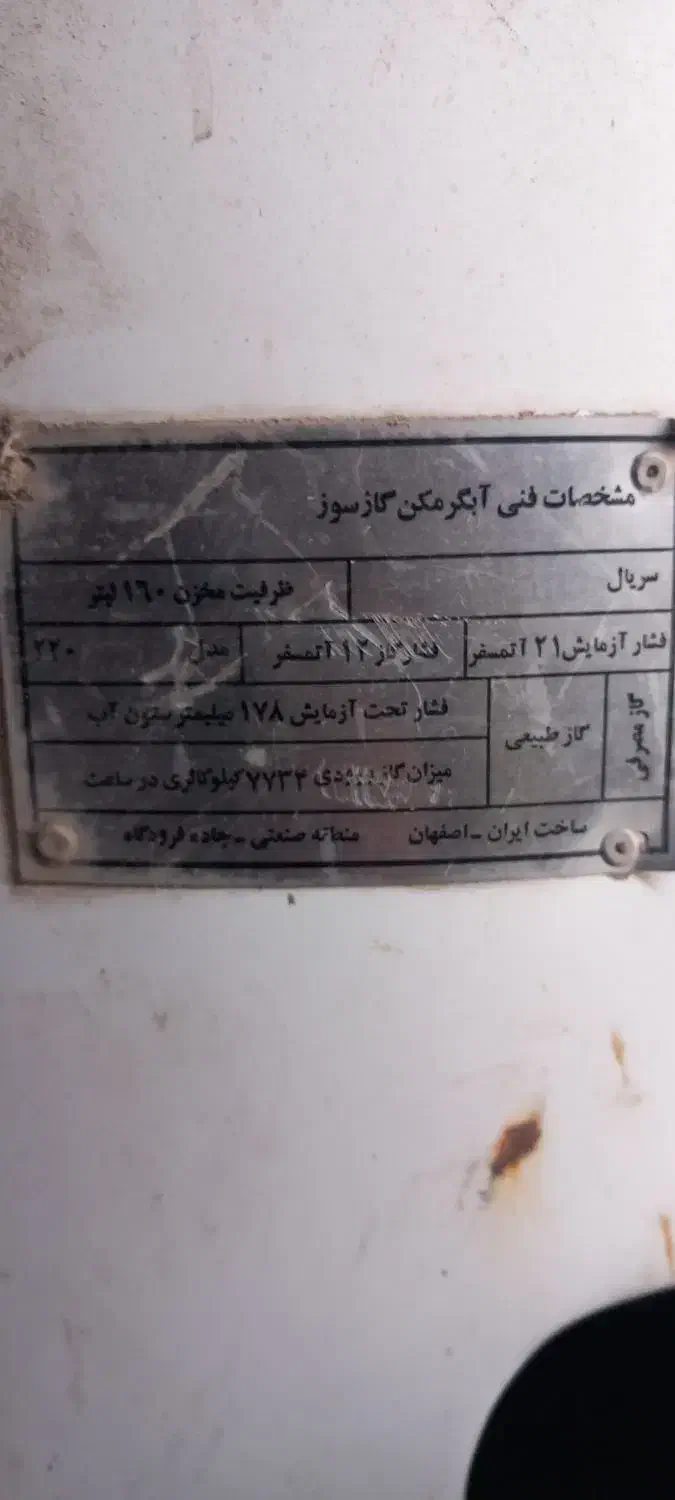 مشخصات فنی آبگرمکن گازسوز
سریال
ظرفیت مخزن ١٦٠ لیتر
فشار آزمایش ٢١ آتمسفر
فشار کار ١٢ آتمسفر
مدل ٢٢٠
گاز مصرفی
گاز طبیعی
فشار تحت آزمایش ١٧٨ میلیمتر ستون آب
میزان گاز ورودی ٧٧٣٢ کیلوکالری در ساعت
ساخت ایران ـ اصفهان منطقه صنعتی ـ جاده فرودگاه